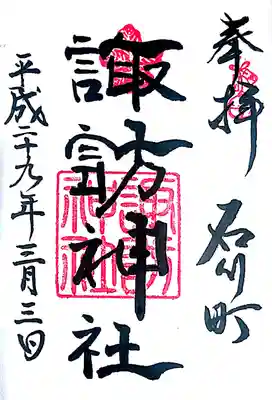 奉拝　石川町
諏訪神社
平成二十九年三月三日